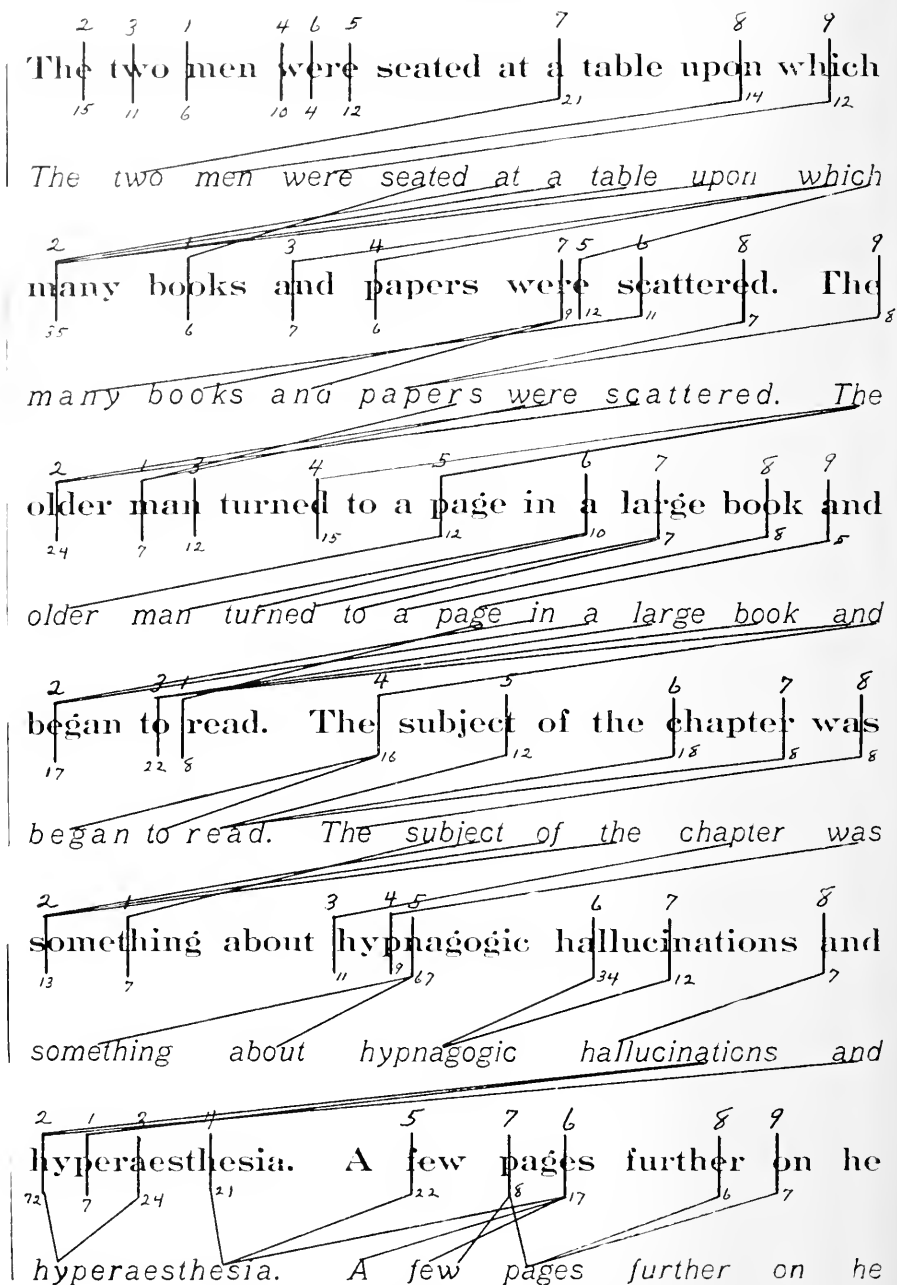 2 3 1 4 6 5 7 8 9
The two men were seated at a table upon which
15 11 6 10 4 12 21 14 12
The two men were seated at a table upon which
2 1 3 4 7 5 6 8 9
many books and papers were scattered. The
35 6 7 6 9 12 11 7 8
many books and papers were scattered. The
2 1 3 4 5 6 7 8 9
older man turned to a page in a large book and
24 7 12 15 12 10 7 8 5
older man turned to a page in a large book and
2 3 1 4 5 6 7 8
began to read. The subject of the chapter was
17 22 8 16 12 18 8 8
began to read. The subject of the chapter was
2 1 3 4 5 6 7 8
something about hypnagogic hallucinations and
13 7 11 9 67 34 12 7
something about hypnagogic hallucinations and
2 1 3 4 5 7 6 8 9
hyperaesthesia. A few pages further on he
72 7 24 21 22 8 17 6 7
hyperaesthesia. A few pages further on he